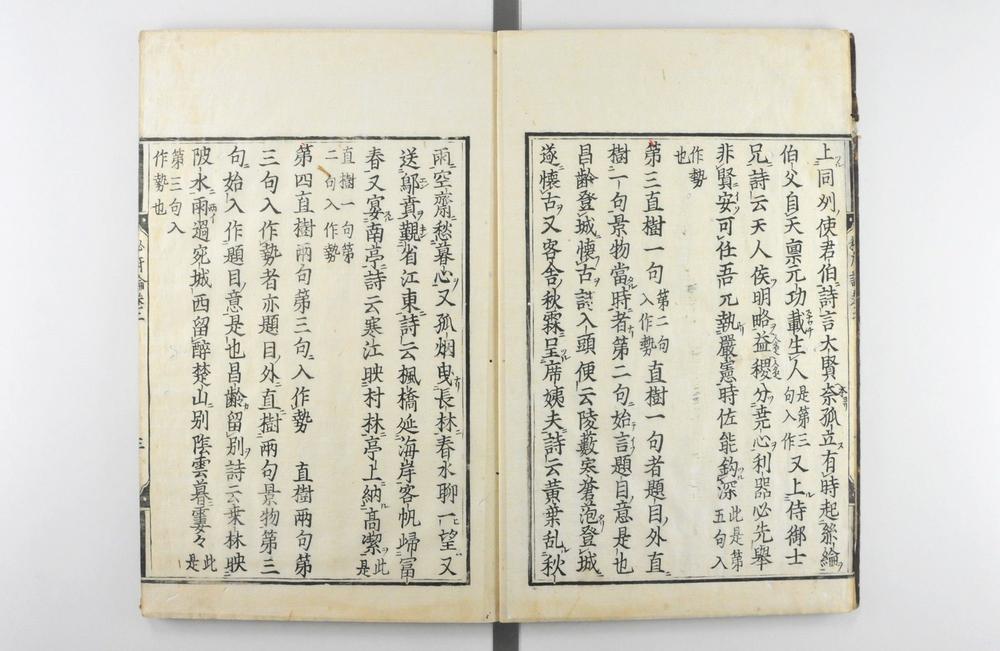 上同州使君伯詩言大賢奈孤立有時起絲綸
伯父自天稟元功載生人是第三句入作又上侍御士
兄詩云天人俟明略益稷分尭心利器必先舉
非賢安可任吾兄執嚴憲時佐能鈎深此是第五句入
作勢也
第三直樹一句第二句入作勢直樹一句者題目外直
樹一句景物當時者第二句始言題目意是也
昌齡登城懷古詩入頭便云陵藪寒蒼茫登城
遂懷古又客舎秋霖呈席姨夫詩云黄葉乱秋
雨空齋愁暮心又孤烟曳長林春水聊一望又
送鄔賁覲省江東詩云楓橋延海岸客帆歸冨
春又宴南亭詩云寒江映村林亭上納高潔此是
直樹一句第二句入作勢
第四直樹兩句第三句入作勢 直樹兩句第
三句入作勢者亦題目外直樹兩句景物第三
句始入作題目意是也昌齡留別詩云桒林映
陂水雨過宛城西留醉楚山別陰雲暮霎々此是
第三句入作勢也
三